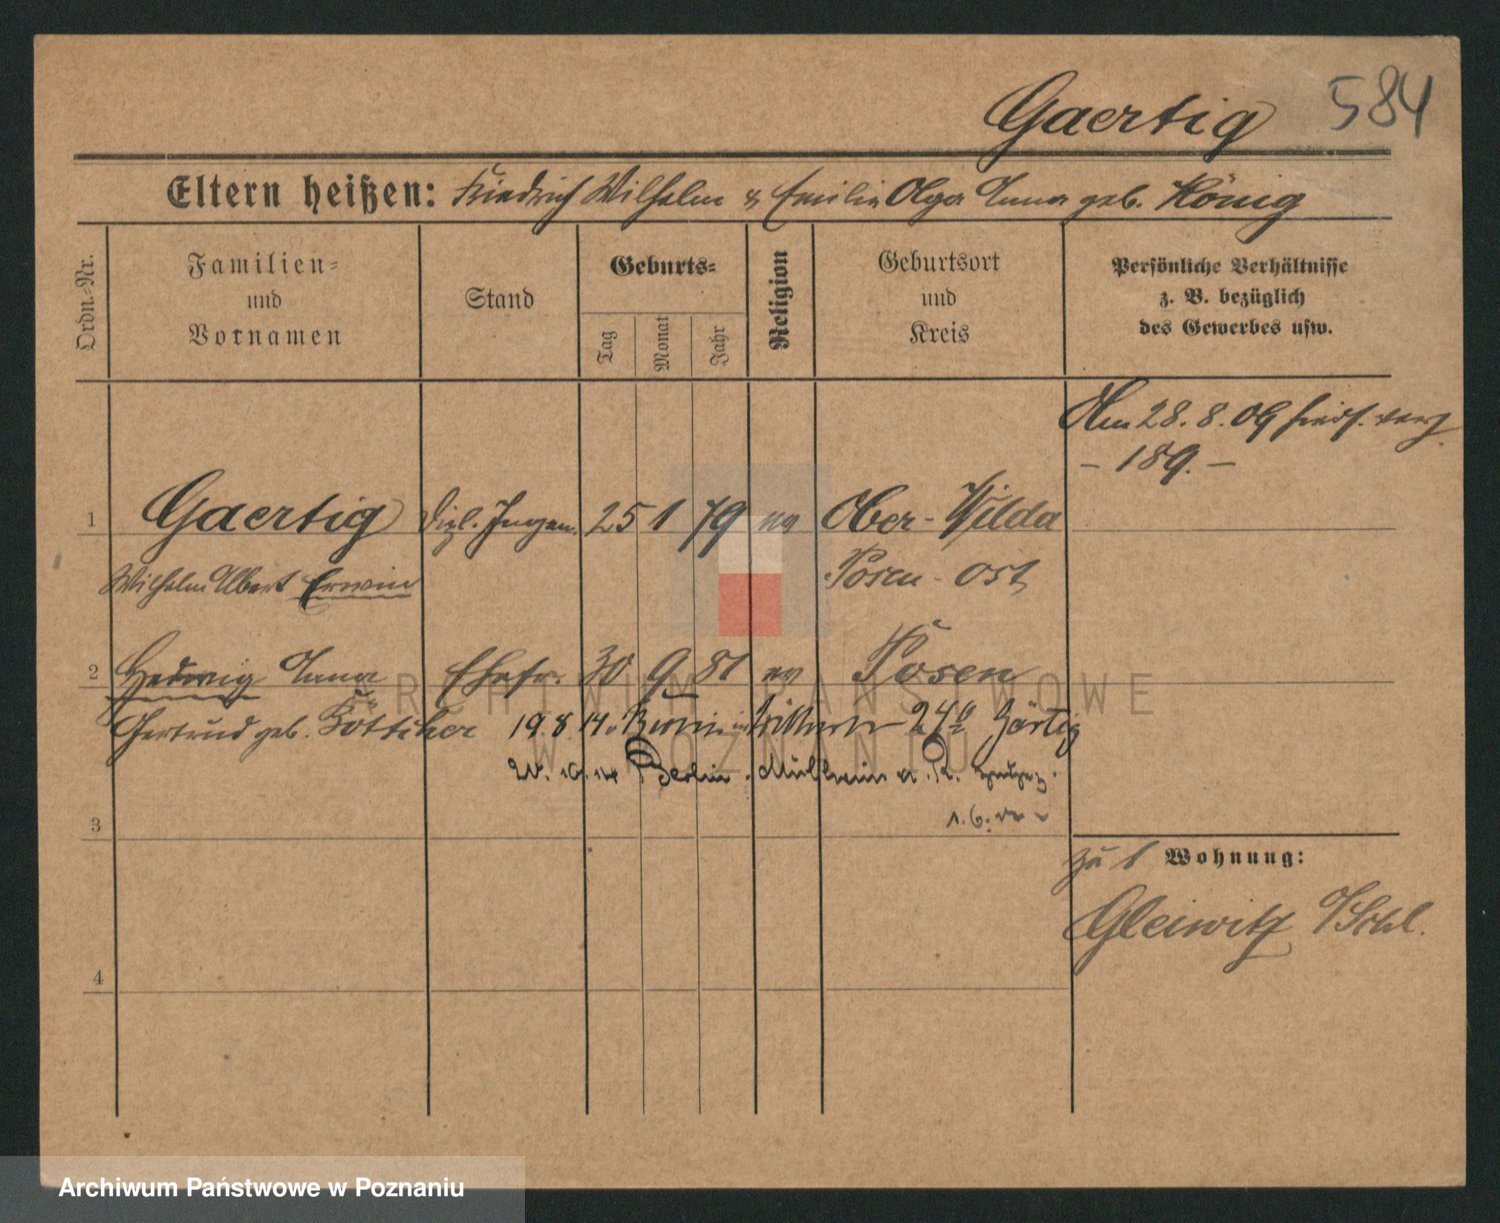 Gaertig 584
Eltern heißen: Friedrich Wilhelm & Emilie Olga Anna geb. König
Ordn.-Nr.
Familien-
und
Vornamen
Stand
Geburts-
Tag
Monat
Jahr
Religion
Geburtsort
und
Kreis
Persönliche Verhältnisse
z. B. bezüglich
des Gewerbes usw.
Am 28. 8. 09 hierh. verz.
- 189. -
1 Gaertig Dipl. Ingen. 25 1 79 ev Ober-Wilda
Wilhelm Albert Erwin Posen-Ost
2 Hedwig Anna Ehefr. 30 9 81 ev Posen
Gertrud geb. Böttcher 19. 8 14 v. Berlin 24 Gärtig
10. 14 Berlin. Mülheim a. R.
1. 6.
3
zu 1 Wohnung:
Gleiwitz O/Schl.
4
ARCHIWUM PAŃSTWOWE
W POZNANIU
Archiwum Państwowe w Poznaniu